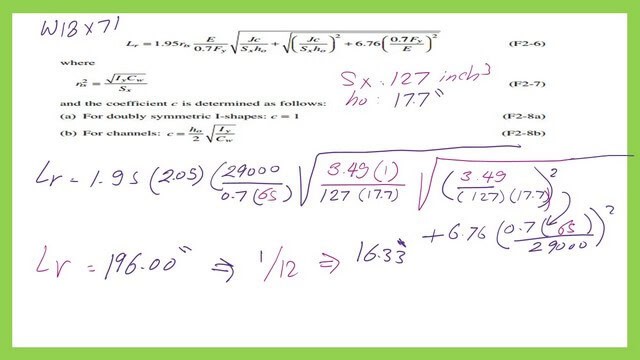 W18 x 71
L_r = 1.95 r_ts E/(0.7F_y) √(Jc/(S_x h_o) + √((Jc/(S_x h_o))² + 6.76 (0.7F_y/E)²)) (F2-6)
where
r_ts² = √(I_y C_w)/S_x (F2-7)
Sx = 127 inch³
ho: 17.7"
and the coefficient c is determined as follows:
(a) For doubly symmetric I-shapes: c = 1 (F2-8a)
(b) For channels: c = h_o/2 √(I_y/C_w) (F2-8b)
Lr = 1.95 (2.05) (29000/0.7(65)) √(3.49(1)/127(17.7)) √((3.49/(127)(17.7))²
+ 6.76 (0.7(65)/29000)²
Lr = 196.00" ⇒ 1/12 ⇒ 16.33"